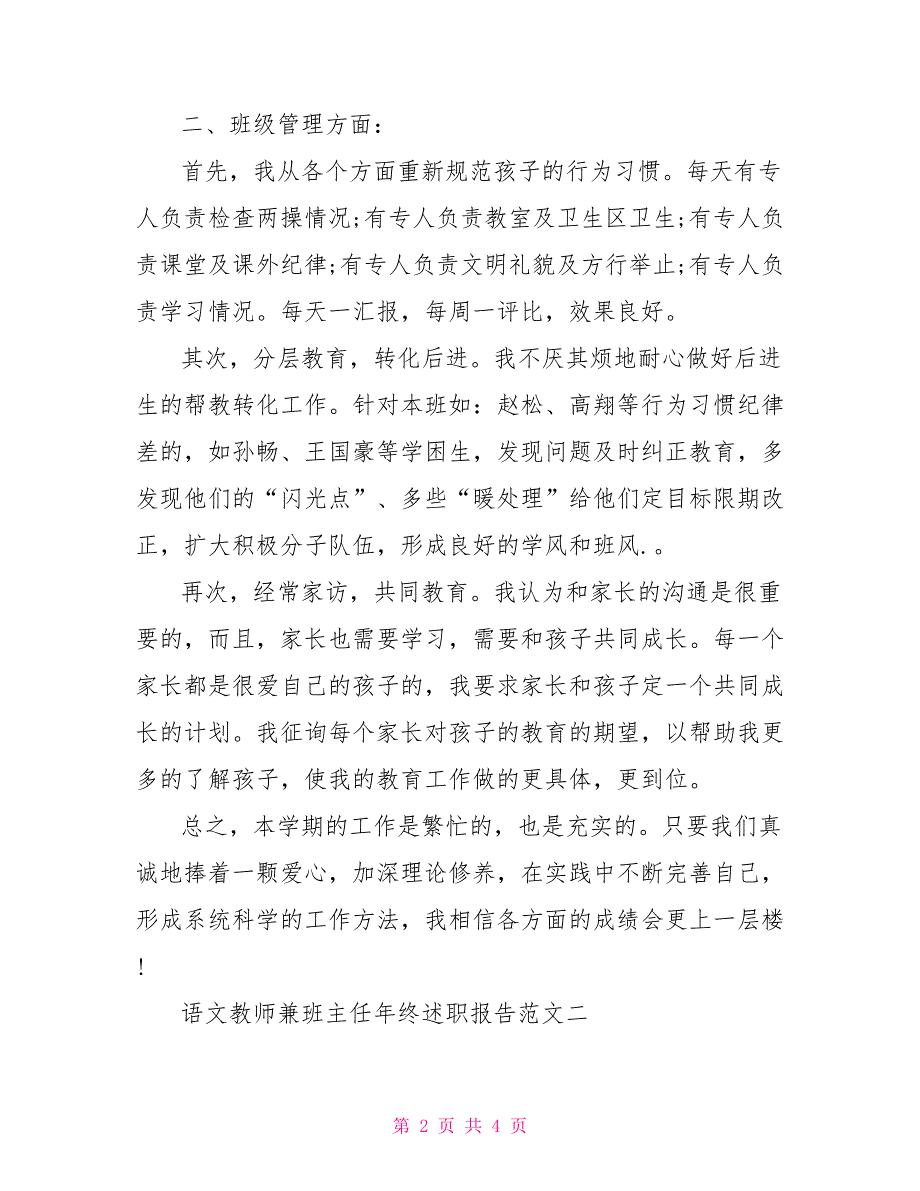 二、班级管理方面：
首先，我从各个方面重新规范孩子的行为习惯。每天有专
人负责检查两操情况;有专人负责教室及卫生区卫生;有专人负
责课堂及课外纪律;有专人负责文明礼貌及方行举止;有专人负
责学习情况。每天一汇报，每周一评比，效果良好。
其次，分层教育，转化后进。我不厌其烦地耐心做好后进
生的帮教转化工作。针对本班如：赵松、高翔等行为习惯纪律
差的，如孙畅、王国豪等学困生，发现问题及时纠正教育，多
发现他们的“闪光点”、多些“暖处理”给他们定目标限期改
正，扩大积极分子队伍，形成良好的学风和班风.。
再次，经常家访，共同教育。我认为和家长的沟通是很重
要的，而且，家长也需要学习，需要和孩子共同成长。每一个
家长都是很爱自己的孩子的，我要求家长和孩子定一个共同成
长的计划。我征询每个家长对孩子的教育的期望，以帮助我更
多的了解孩子，使我的教育工作做的更具体，更到位。
总之，本学期的工作是繁忙的，也是充实的。只要我们真
诚地捧着一颗爱心，加深理论修养，在实践中不断完善自己，
形成系统科学的工作方法，我相信各方面的成绩会更上一层楼
!
语文教师兼班主任年终述职报告范文二
第 2 页 共 4 页